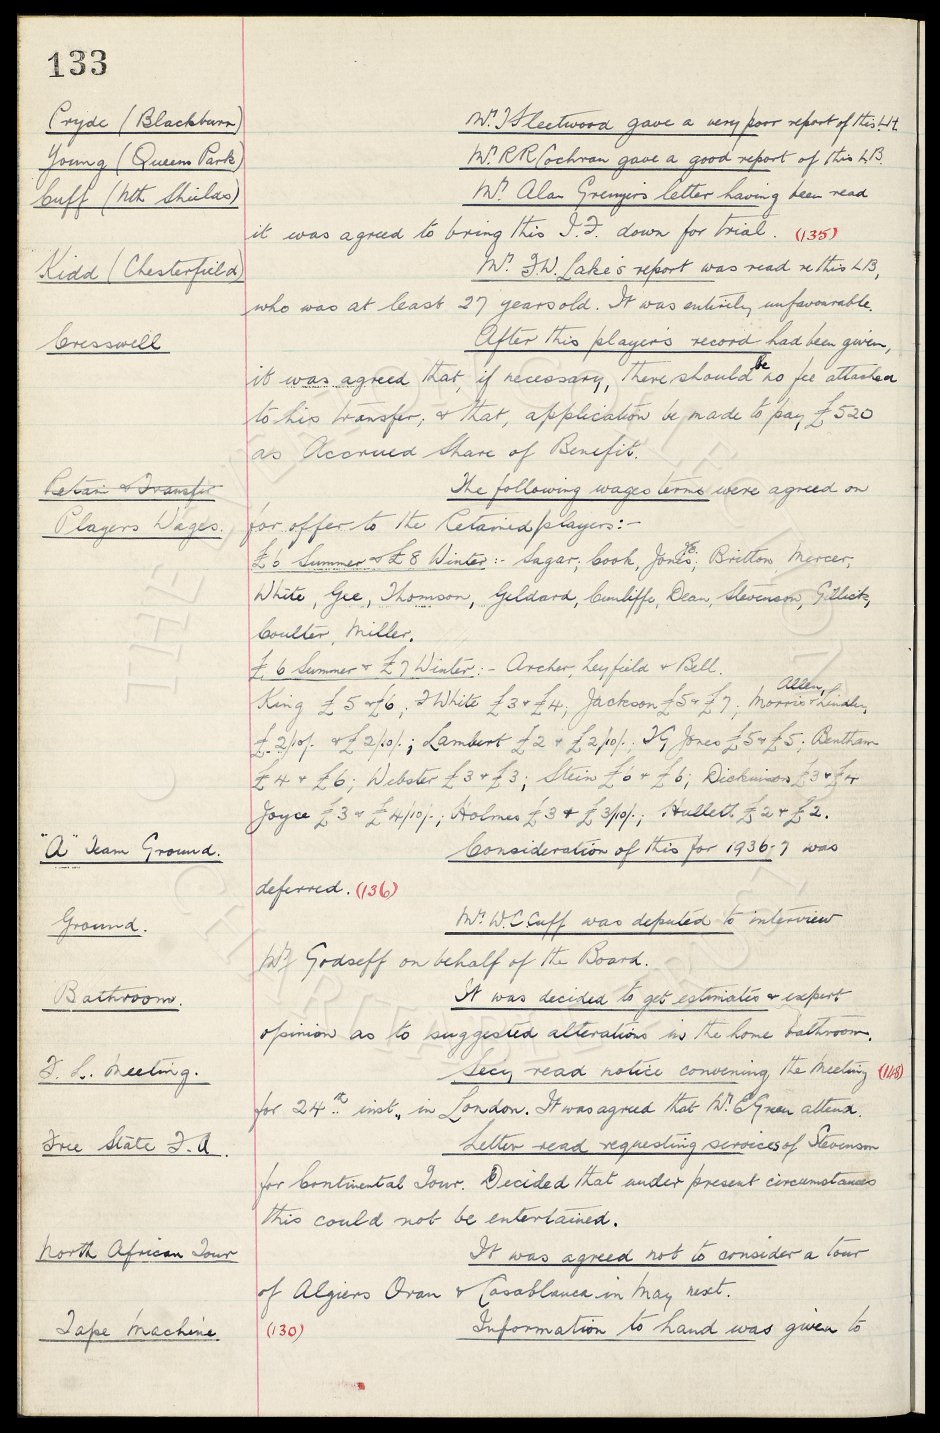 133
Pryde (Blackburn) Mr. J Fleetwood gave a very poor report of this W.H.
Young (Queens Park) Mr. R R Cochran gave a good report of this L.B.
Cuff (Nth Shields) Mr. Alan Grenyer's letter having been read
it was agreed to bring this I.F. down for trial. (135)
Kidd (Chesterfield) Mr. F.W. Lake's report was read re this L B,
who was at least 27 years old. It was entirely unfavourable.
Cresswell After this player's record had been given,
it was agreed that, if necessary, there should be no fee attached
to his transfer, & that, application be made to pay, £520
as Accrued Share of Benefit.
Retain & Transfer The following wages terms were agreed on
Players Wages. for offer to the Retained players:-
£6 Summer & £8 Winter:- Sagar, Cook, Jones, Britton, Mercer,
White, Gee, Thomson, Geldard, Cunliffe, Dean, Stevenson, Gillick,
Coulter, Miller.
£6 Summer & £7 Winter:- Archer, Leyfield & Bell.
King £5 & £6; T White £3 & £4; Jackson £5 & £7; Morris Allen, & Lindley,
£2/10/- & £2/10/-; Lambert £2 & £2/10/-; T G Jones £5 & £5; Bentham
£4 & £6; Webster £3 & £3; Stein £6 & £6; Dickinson £3 & £4
Joyce £3 & £4/10/-; Holmes £3 & £3/10/-; Hullett £2 & £2.
"A" Team Ground. Consideration of this for 1936-7 was
deferred. (136)
Ground. Mr. W.C. Cuff was deputed to interview
Mr Godseff on behalf of the Board.
Bathroom. It was decided to get estimates & expert
opinion as to suggested alterations in the home bathroom.
F. L. Meeting. Secy read notice convening the Meeting (148)
for 24th inst., in London. It was agreed that Mr. E Green attend.
Free State F. A. Letter read requesting services of Stevenson
for Continental Tour. Decided that under present circumstances
this could not be entertained.
North African Tour It was agreed not to consider a tour
of Algiers Oran & Casablanca in May next.
Tape Machine (130) Information to hand was given to
© THE EVERTON COLLECTION
CHARITABLE TRUST